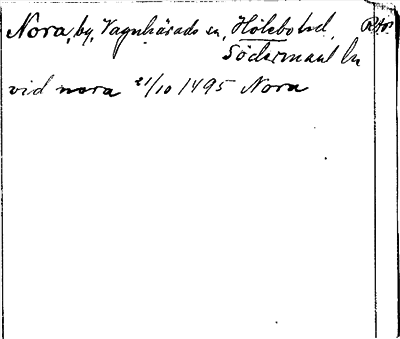 Nora, by, Vagnhärads sn, Hölebo hd,
Södermanl. ln
vid nora 21/10 1495 Nora